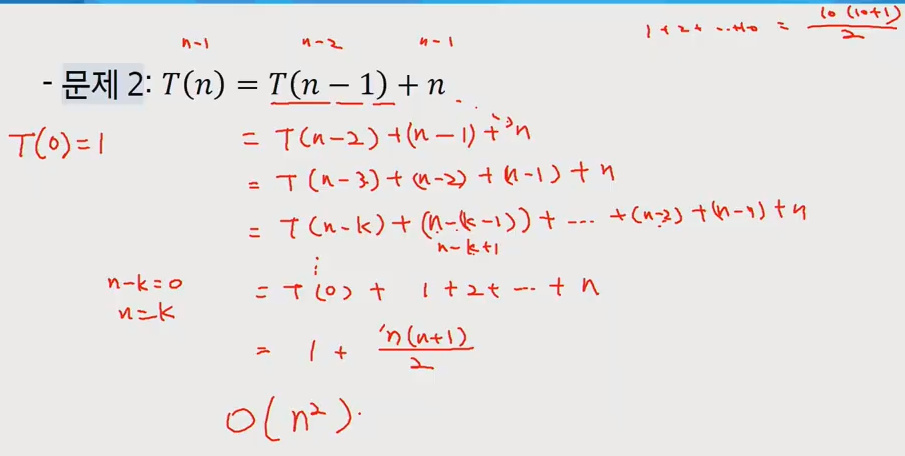 1+2+ ... +10 = 10(10+1)/2
n-1 n-2 n-1
- 문제 2: T(n) = T(n − 1) + n
T(0)=1
= T(n-2)+(n-1)+n
= T(n-3)+(n-2)+(n-1)+n
= T(n-k)+(n-(k-1))+ ... +(n-2)+(n-1)+n
n-k+1
⋮
n-k=0
n=k
= T(0) + 1+2+ ... + n
= 1 + n(n+1)/2
O(n²).